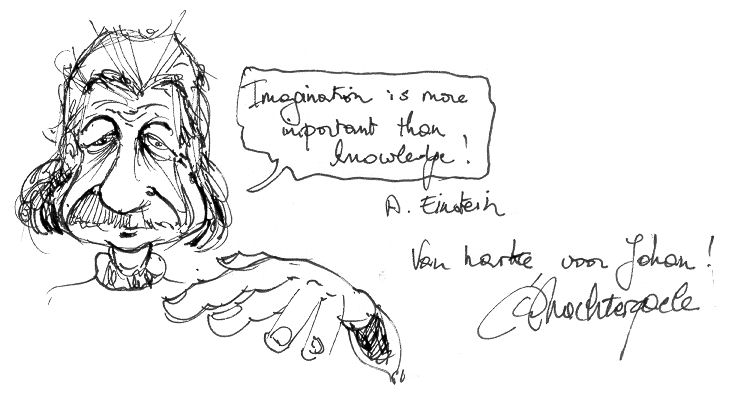 Imagination is more
important than
knowledge!
A. Einstein
Van harte voor Johan!